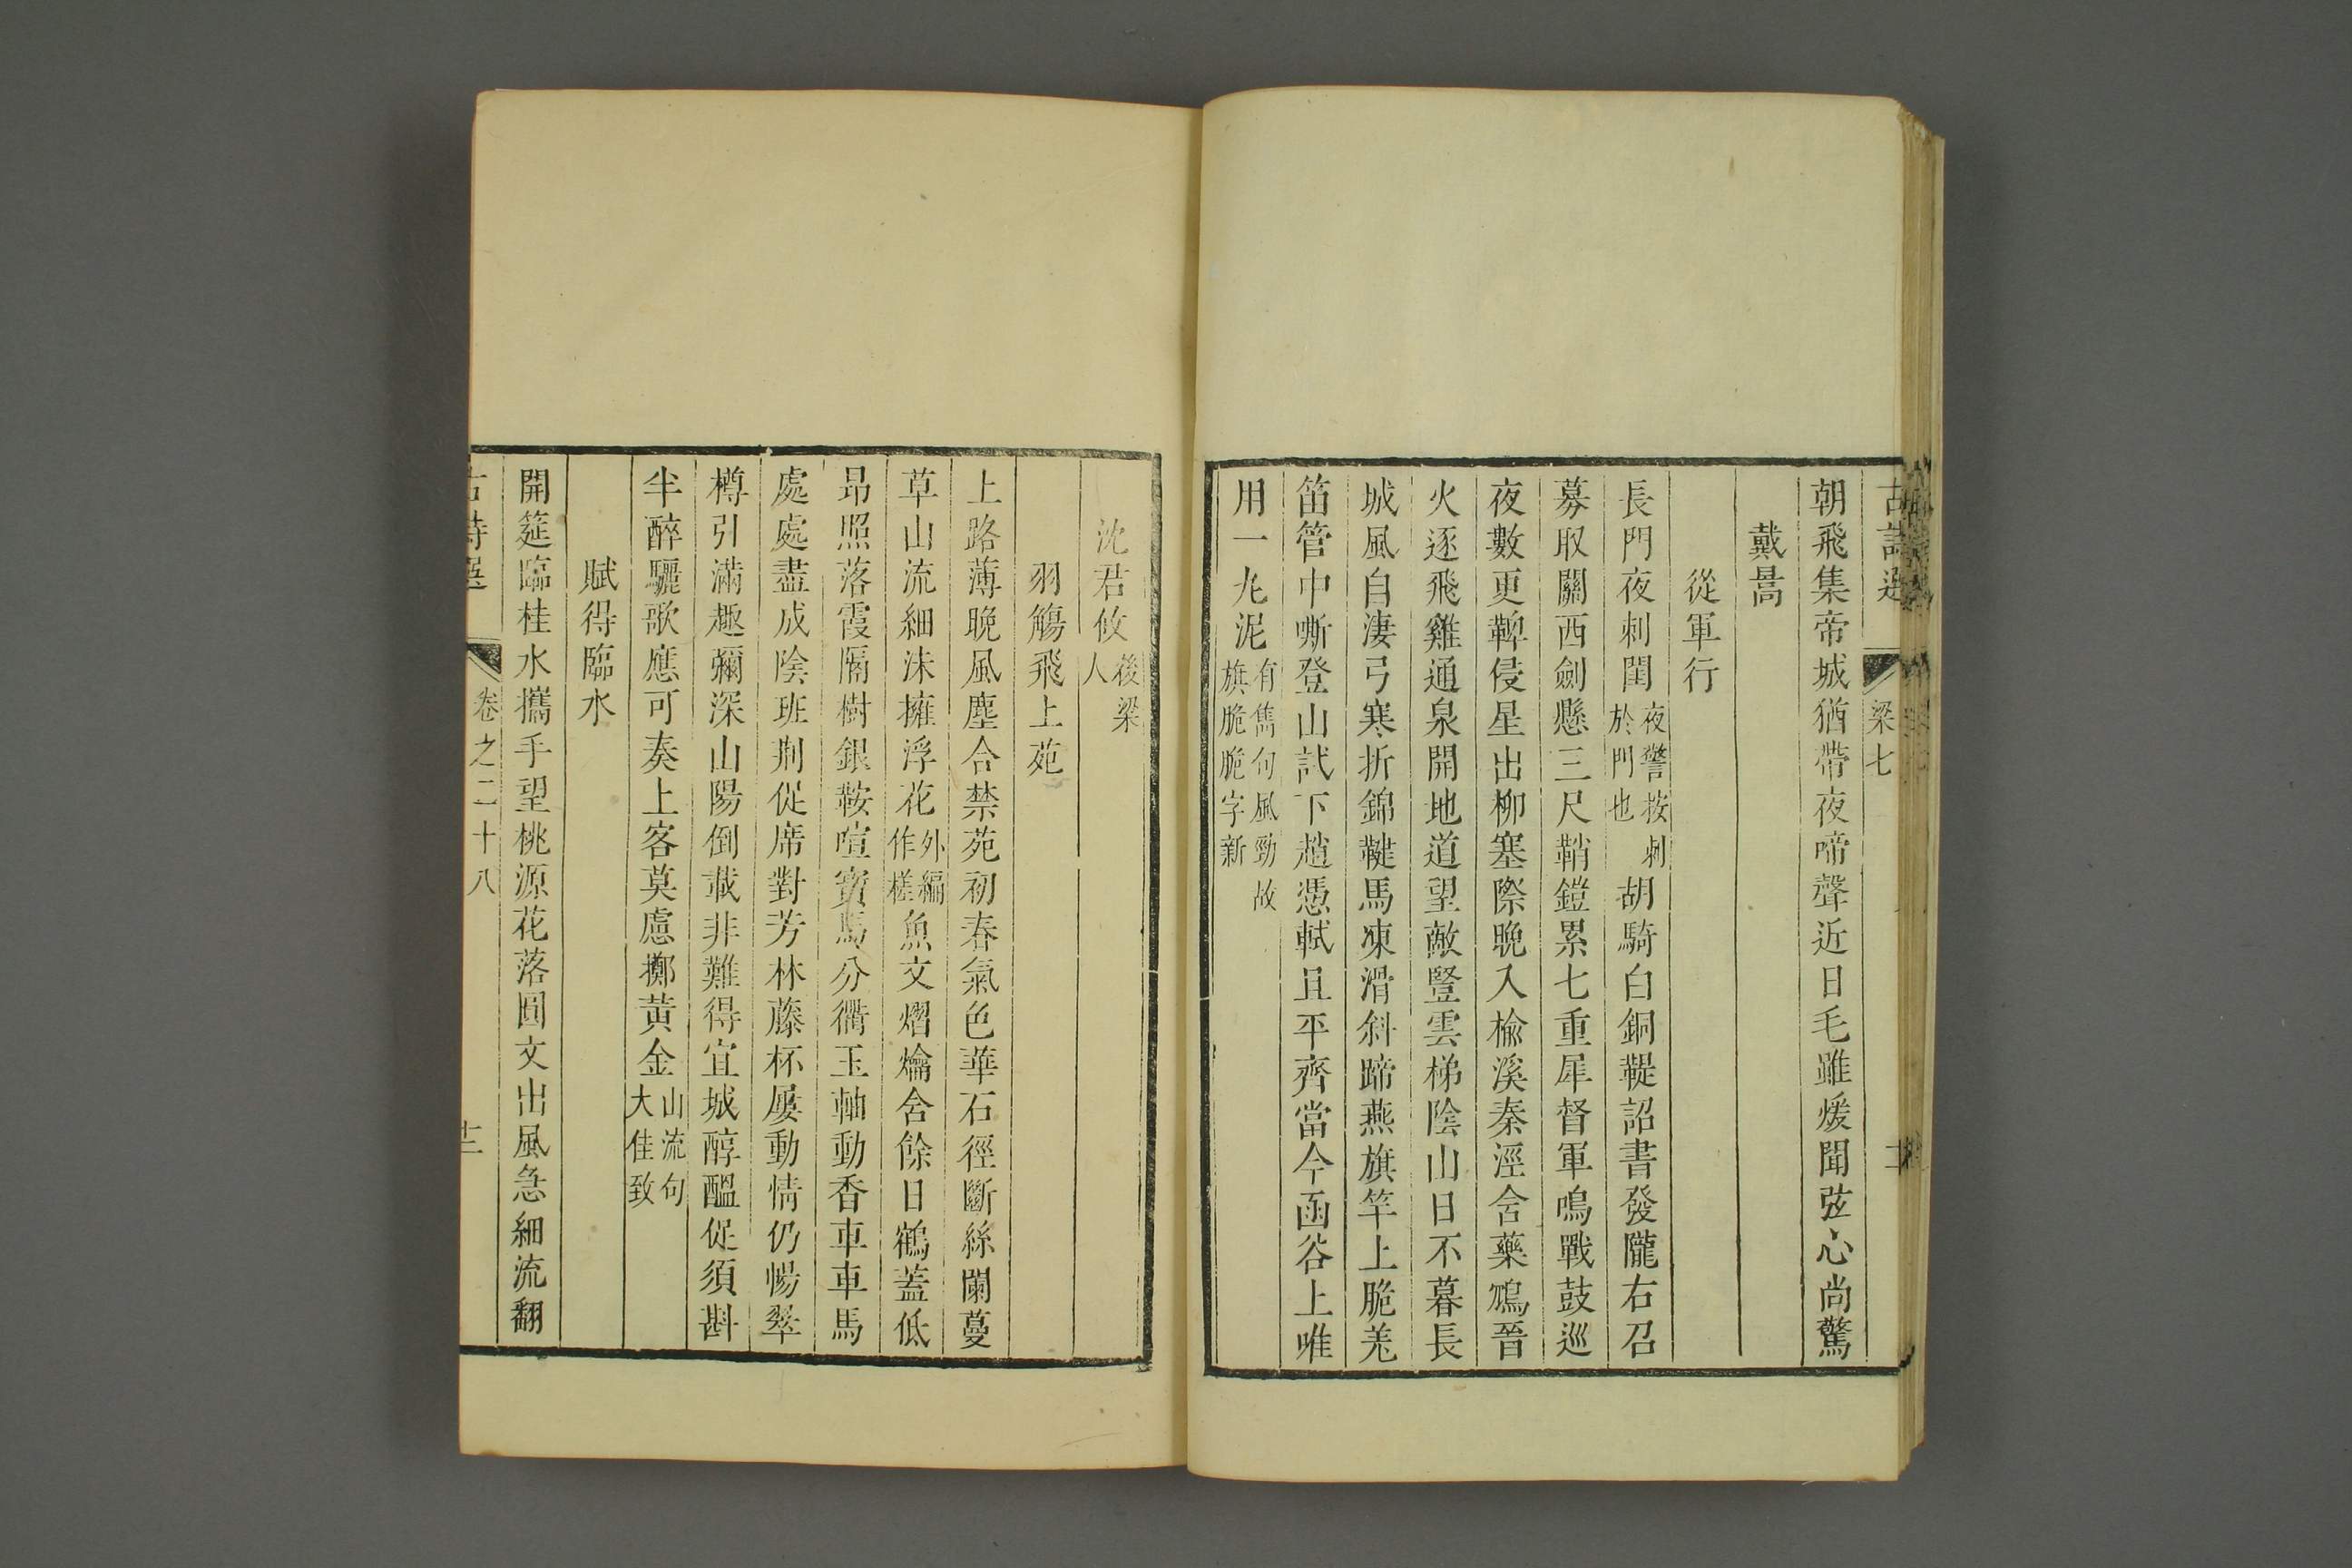 古詩選 梁七
朝飛集帝城猶帶夜啼聲近日毛雖煖聞弦心尚驚
戴暠
從軍行
長門夜刺閨夜警按刺於門也胡騎白銅鞮詔書發隴右召
募取關西劍懸三尺鞘鎧累七重犀督軍鳴戰鼓巡
夜數更鞞侵星出柳塞際晩入榆溪秦涇含藥鴆晉
火逐飛雞通泉開地道望敵豎雲梯陰山日不暮長
城風自淒弓寒折錦鞬馬凍滑斜蹄燕旗竿上脆羌
笛管中嘶登山試下趙憑軾且平齊當今函谷上唯
用一丸泥有雋句風勁故旗脆脆字新
沈君攸後梁人
羽觴飛上苑
上路薄晚風塵合禁苑初春氣色華石徑斷絲闌蔓
草山流細沫擁浮花外編作槎魚文熠爚含餘日鶴蓋低
昂照落霞隔樹銀鞍喧寶馬分衢玉軸動香車車馬
處處盡成陰班荆促席對芳林藤杯屢動情仍暢翠
樽引滿趣彌深山陽倒載非難得宜城醇醞促須斟
半醉驪歌應可奏上客莫慮擲黃金山流句大佳致
賦得臨水
開筵臨桂水攜手望桃源花落圓文出風急細流翻
古詩選 卷之二十八 十二